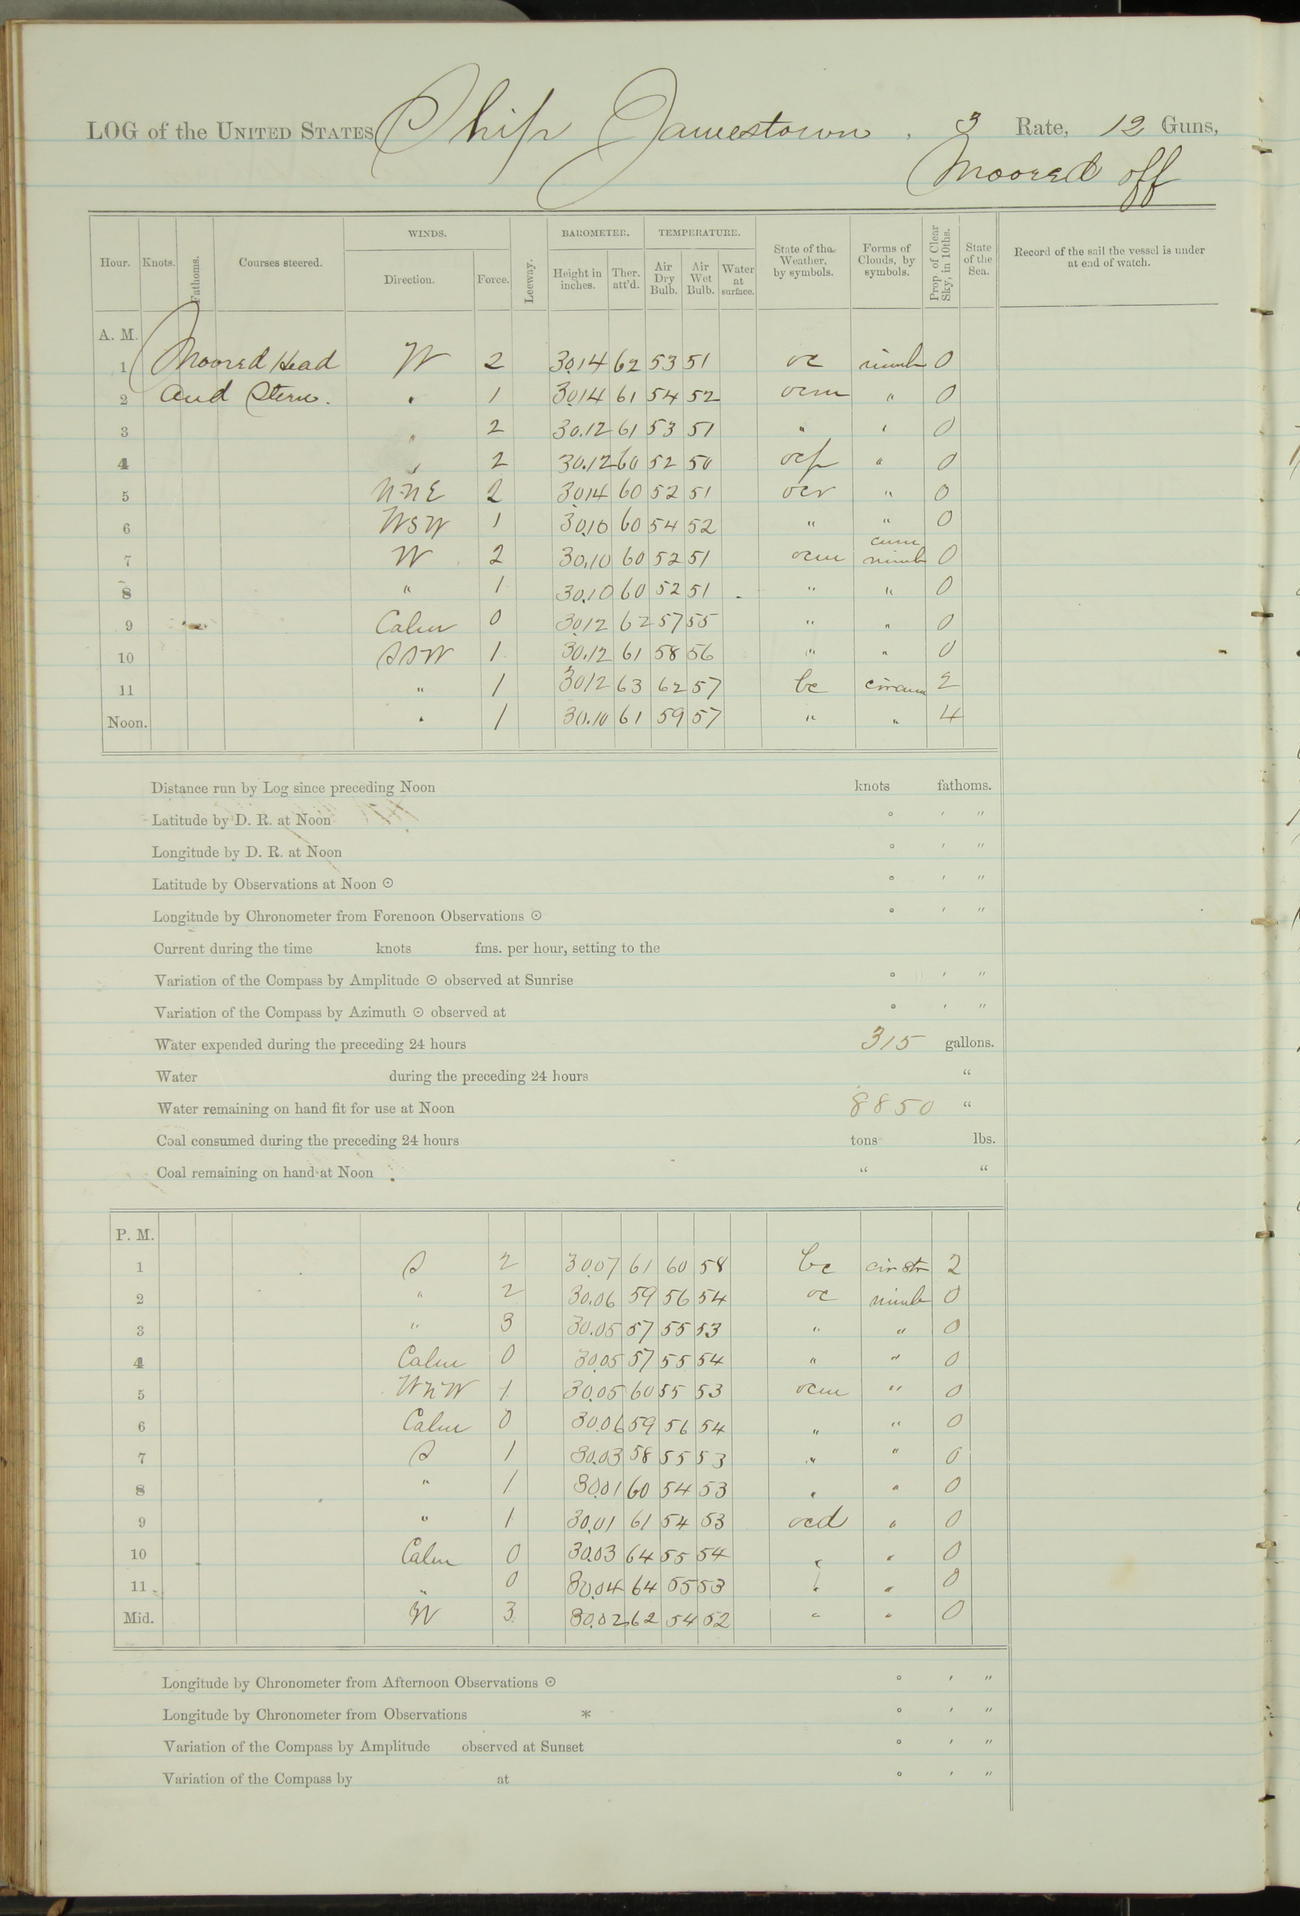 LOG of the UNITED STATES Ship Jamestown, 3 Rate, 12 Guns,
Moored off
Hour. Knots. Fathoms. Courses steered. WINDS. Direction. Force. Leeway. BAROMETER. Height in inches. Ther. att'd. TEMPERATURE. Air Dry Bulb. Air Wet Bulb. Water at surface. State of the Weather, by symbols. Forms of Clouds, by symbols. Prop. of Clear Sky, in 10ths. State of the Sea. Record of the sail the vessel is under at end of watch.
A. M.
1 Moored Head W 2 30.14 62 53 51 oc nimb 0
2 and Stern. " 1 30.14 61 54 52 ocm " 0
3 " 2 30.12 61 53 51 " " 0
4 " 2 30.12 60 52 50 ocp " 0
5 N.N.E 2 30.14 60 52 51 ocr " 0
6 WSW 1 30.10 60 54 52 " " 0
7 W 2 30.10 60 52 51 ocm cum nimb 0
8 " 1 30.10 60 52 51 " " 0
9 Calm 0 30.12 62 57 55 " " 0
10 SSW 1 30.12 61 58 56 " " 0
11 " 1 30.12 63 62 57 bc circum 2
Noon. " 1 30.10 61 59 57 " " 4
Distance run by Log since preceding Noon knots fathoms.
Latitude by D. R. at Noon ° ′ ″
Longitude by D. R. at Noon ° ′ ″
Latitude by Observations at Noon ☉ ° ′ ″
Longitude by Chronometer from Forenoon Observations ☉ ° ′ ″
Current during the time knots fms. per hour, setting to the
Variation of the Compass by Amplitude ☉ observed at Sunrise ° ′ ″
Variation of the Compass by Azimuth ☉ observed at ° ′ ″
Water expended during the preceding 24 hours 315 gallons.
Water during the preceding 24 hours “
Water remaining on hand fit for use at Noon 8850 “
Coal consumed during the preceding 24 hours tons lbs.
Coal remaining on hand at Noon “ “
P. M.
1 S 2 30.07 61 60 58 bc cir str 2
2 " 2 30.06 59 56 54 oc nimb 0
3 " 3 30.05 57 55 53 " " 0
4 Calm 0 30.05 57 55 54 " " 0
5 WNW 1 30.05 60 55 53 ocm " 0
6 Calm 0 30.06 59 56 54 " " 0
7 S 1 30.03 58 55 53 " " 0
8 " 1 30.01 60 54 53 " " 0
9 " 1 30.01 61 54 53 ocd " 0
10 Calm 0 30.03 64 55 54 " " 0
11 " 0 30.04 64 55 53 " " 0
Mid. W 3 30.02 62 54 52 " " 0
Longitude by Chronometer from Afternoon Observations ☉ ° ′ ″
Longitude by Chronometer from Observations * ° ′ ″
Variation of the Compass by Amplitude observed at Sunset ° ′ ″
Variation of the Compass by at ° ′ ″